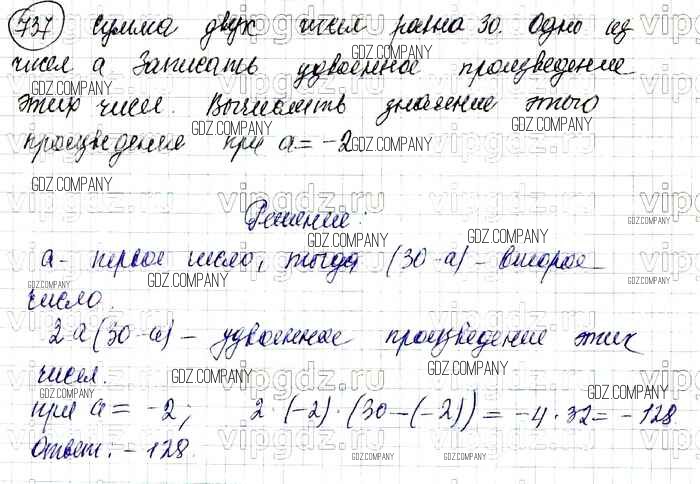 737 Сумма двух чисел равна 30. Одно из
чисел a Записать удвоенное произведение
этих чисел. Вычислить значение этого
произведения при a = -2
Решение:
a - первое число, тогда (30-a) - второе
число.
2a(30-a) - удвоенное произведение этих
чисел.
при a = -2; 2·(-2)·(30-(-2)) = -4·32 = -128
Ответ: -128.
vipgdz.ru
GDZ.COMPANY